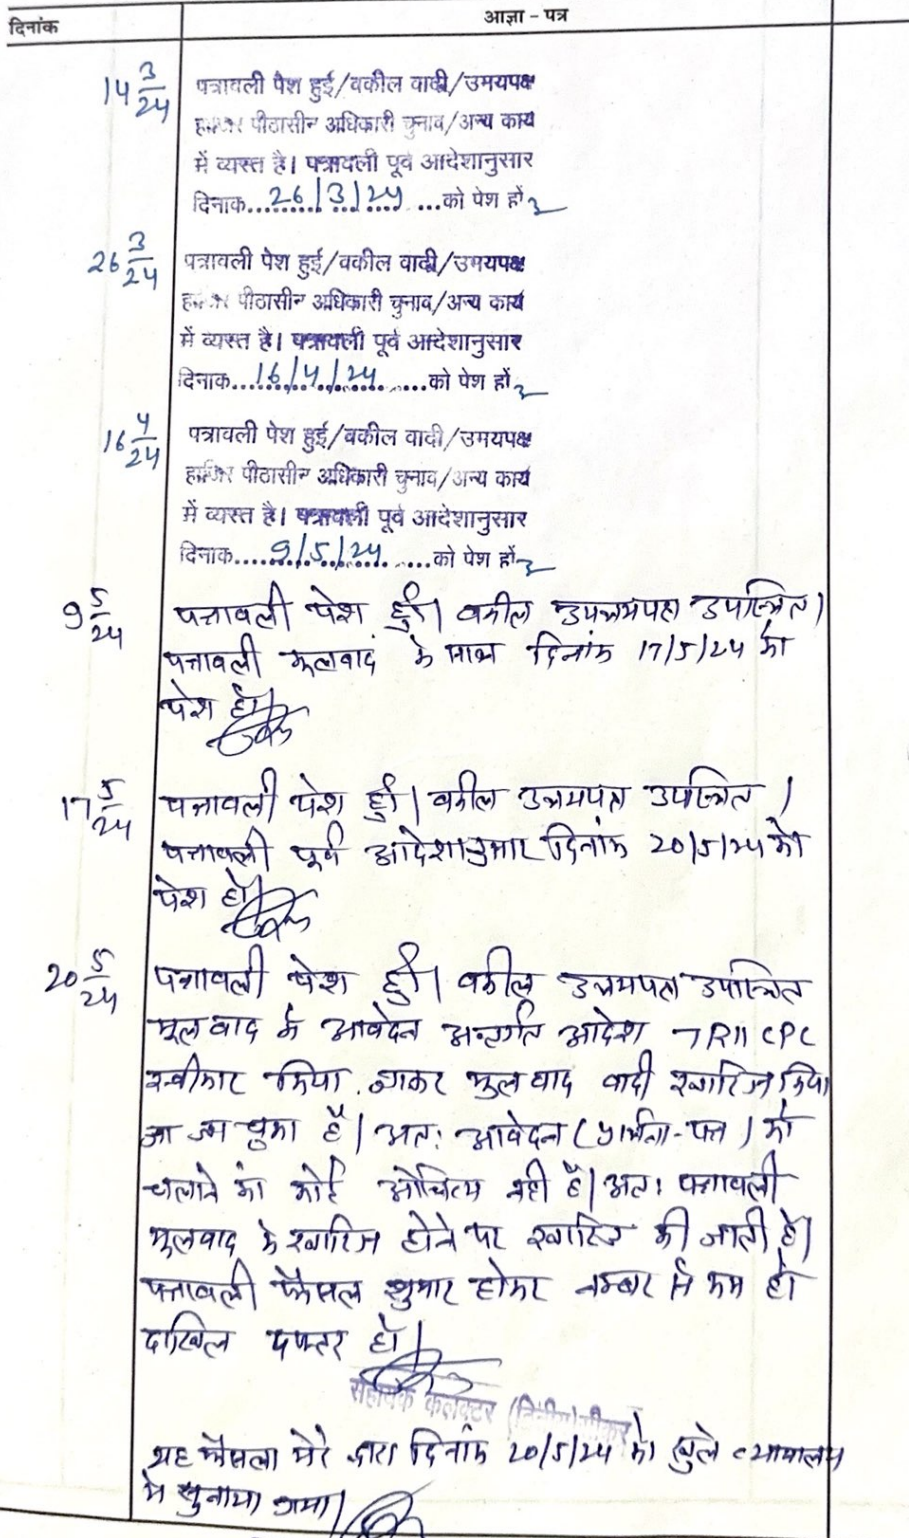 दिनांक
आज्ञा - पत्र
14 3/24
पत्रावली पेश हुई/वकील वादी/उभयपक्ष
हाजिर पीठासीन अधिकारी चुनाव/अन्य कार्य
में व्यस्त है। पत्रावली पूर्व आदेशानुसार
दिनाक...26/3/24...को पेश हों
26 3/24
पत्रावली पेश हुई/वकील वादी/उभयपक्ष
हाजिर पीठासीन अधिकारी चुनाव/अन्य कार्य
में व्यस्त है। पत्रावली पूर्व आदेशानुसार
दिनाक...16/4/24...को पेश हों
16 4/24
पत्रावली पेश हुई/वकील वादी/उभयपक्ष
हाजिर पीठासीन अधिकारी चुनाव/अन्य कार्य
में व्यस्त है। पत्रावली पूर्व आदेशानुसार
दिनाक...9/5/24...को पेश हों
9 5/24
पत्रावली पेश हुई। वकील उभयपक्ष उपस्थित।
पत्रावली मूलवाद के साथ दिनांक 17/5/24 को
पेश हो।
17 5/24
पत्रावली पेश हुई। वकील उभयपक्ष उपस्थित।
पत्रावली पूर्व आदेशानुसार दिनांक 20/5/24 को
पेश हो।
20 5/24
पत्रावली पेश हुई। वकील उभयपक्ष उपस्थित
मूलवाद के आवेदन अन्तर्गत आदेश 7R11 CPC
स्वीकार किया जाकर मूल वाद वादी खारिज किया
जा चुका है। अत: आवेदन (प्रार्थना-पत्र) को
चलाने का कोई औचित्य नही है। अत: पत्रावली
मूलवाद के खारिज होने पर खारिज की जाती है।
पत्रावली फैसल शुमार होकर नम्बर से कम हो
दाखिल दफ्तर हो।
सहायक कलक्टर (द्वितीय) सीकर
यह फैसला मेरे द्वारा दिनांक 20/5/24 को खुले न्यायालय
मे सुनाया गया।